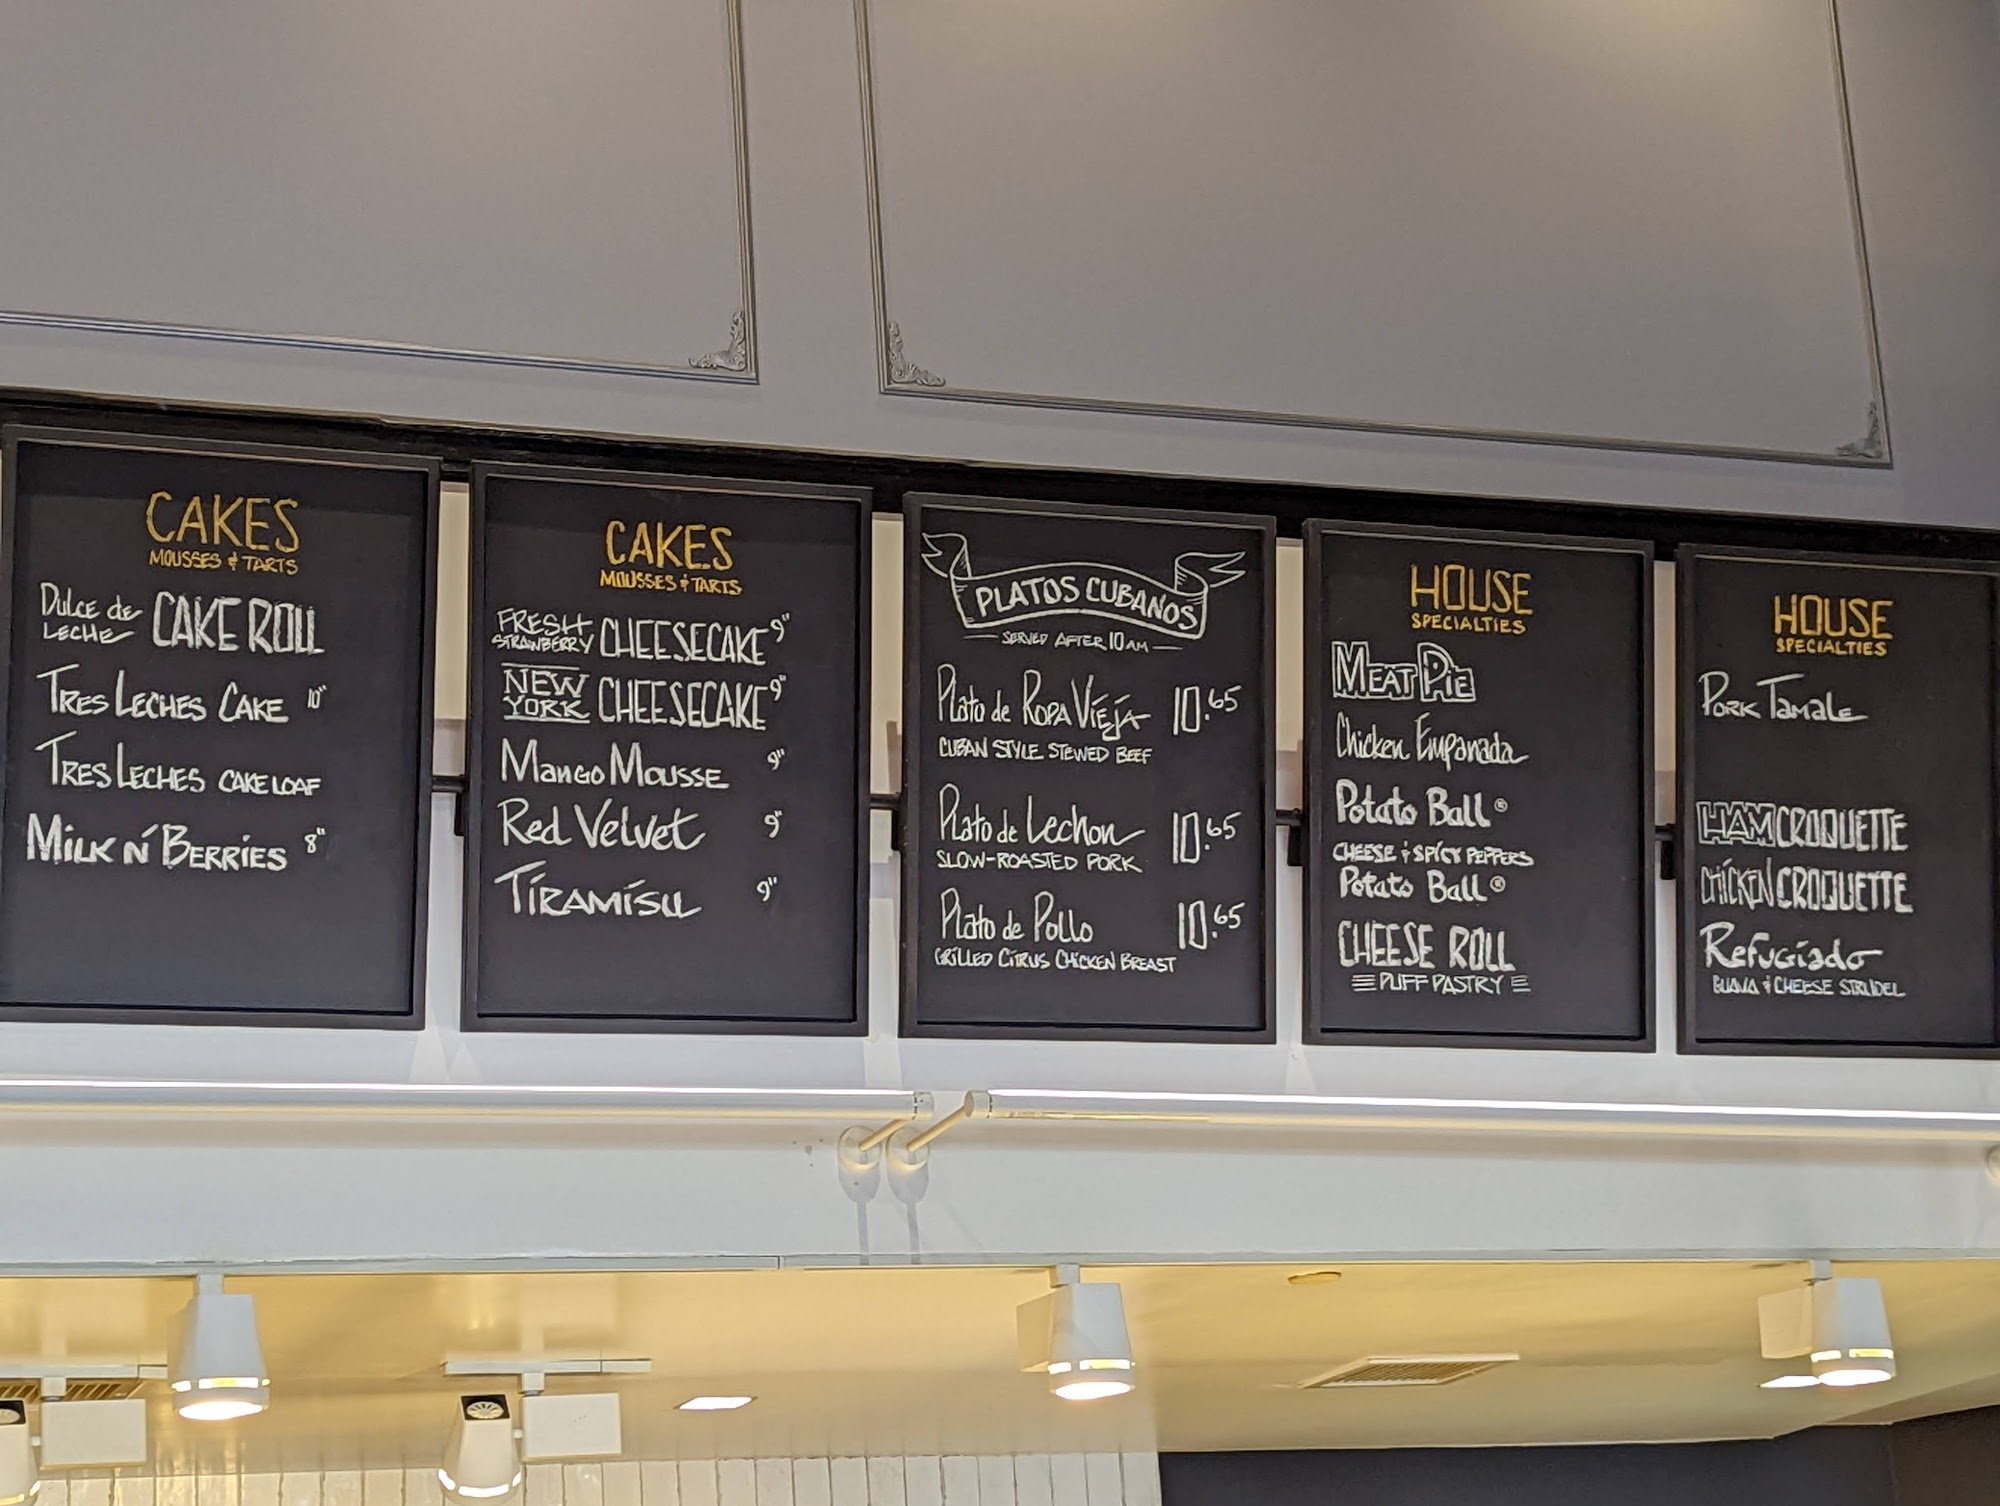 CAKES
MOUSSES & TARTS
DULCE de LECHE CAKE ROLL
TRES LECHES CAKE 10"
TRES LECHES CAKE LOAF
MILK N' BERRIES 8"
CAKES
MOUSSES & TARTS
FRESH STRAWBERRY CHEESECAKE 9"
NEW YORK CHEESECAKE 9"
MANGO MOUSSE 9"
Red Velvet 9"
TIRAMISU 9"
PLATOS CUBANOS
SERVED AFTER 10AM
Plato de ROPA VIEJA 10.65
CUBAN STYLE STEWED BEEF
Plato de Lechon 10.65
SLOW-ROASTED PORK
Plato de Pollo 10.65
GRILLED CITRUS CHICKEN BREAST
HOUSE
SPECIALTIES
MEAT PIE
Chicken Empanada
Potato Ball ®
CHEESE & SPICY PEPPERS
Potato Ball ®
CHEESE ROLL
PUFF PASTRY
HOUSE
SPECIALTIES
PORK TAMALE
HAM CROQUETTE
CHICKEN CROQUETTE
Refugiado
GUAVA & CHEESE STRUDEL